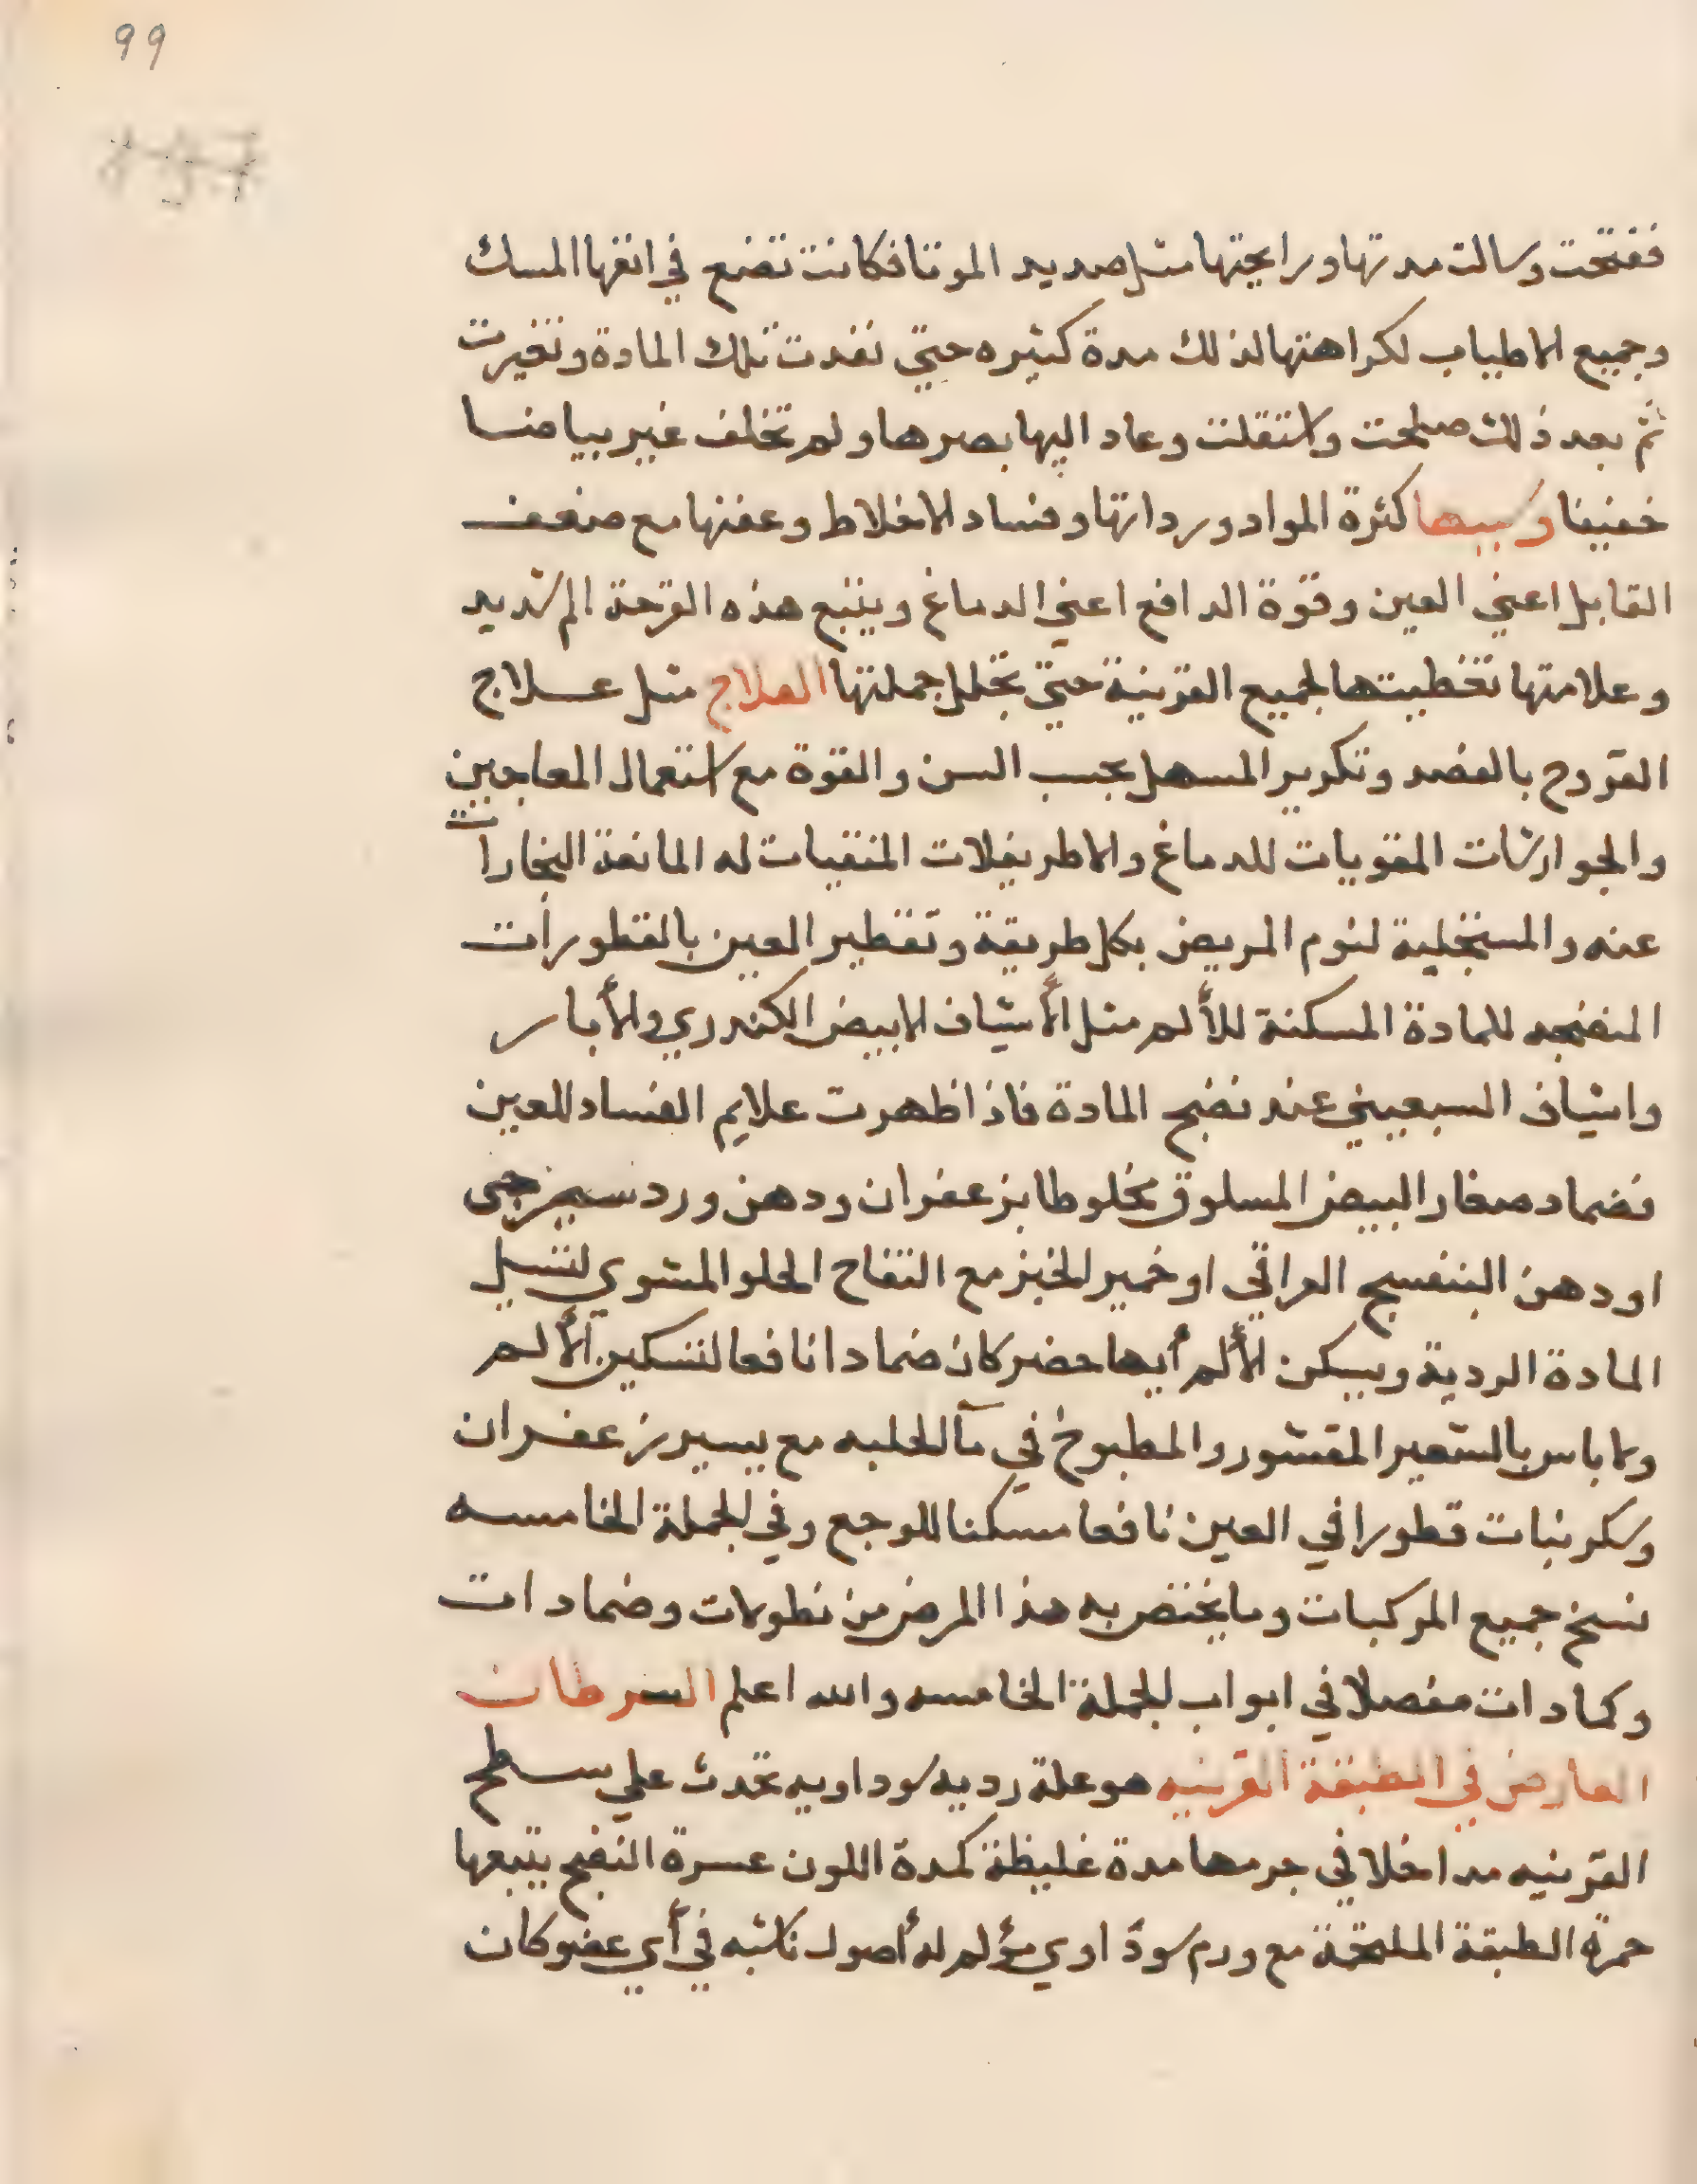 99
ففتحت وسالت مدتها ورايحتها مثل صديد الموتا فكانت تضع في انفها المسك
وجميع الاطياب لكراهتها لذلك مدة كثيره حتي نفدت تلك المادة وتغيرت
ثم بعد ذلك صلحت واستقلت وعاد اليها بصرها ولم تخلف غير بياضا
خفيفا وسببها كثرة المواد ورداتها وفساد الاخلاط وعفنها مع ضعف
القابل اعني العين وقوة الدافع اعني الدماغ ويتبع هذه القرحة الم شديد
وعلامتها تغطيتها لجميع القرنية حتي تجلل جملتها العلاج مثل علاج
القروح بالفصد وتكرير المسهل بحسب السن والقوة مع استعمال المعاجين
والجوارشات المقويات للدماغ والاطريفلات المنقيات له المانعة البخارات
عنه والمستجلبة لنوم المريض بكل طريقة وتقطير العين بالقطورات
المنضجه للمادة المسكنة للألم مثل الأشياف الابيض الكندري والأبار
واشياف السبعيني عند نضج المادة فاذا ظهرت علايم الفساد للعين
فضماد صفار البيض المسلوق مخلوطا بزعفران ودهن ورد سيرجي
او دهن البنفسج العراقي او خمير الخبز مع التفاح الحلو المشوي لتسيل
المادة الردية ويسكن الألم أيها حضر كان ضمادا نافعا لتسكين الألم
ولا باس بالشعير المقشور والمطبوخ في مآ الحلبه مع يسير زعفران
وسكر نبات قطورا في العين نافعا مسكنا للوجع وفي الجملة الخامسه
نسخ جميع المركبات وما يختص به هذا المرض من نطولات وضمادات
وكمادات مفصلا في ابواب الجملة الخامسه والله اعلم السرطان
العارض في الطبقة القرنيه هو علة رديه سوداويه تحدث علي سطح
القرنيه مداخلا في جرمها مدة غليظة كمدة اللون عسرة النضج يتبعها
حمرة الطبقة الملتحمة مع ورم سوداوي مؤلم له أصول ناشبه في أي عضو كان